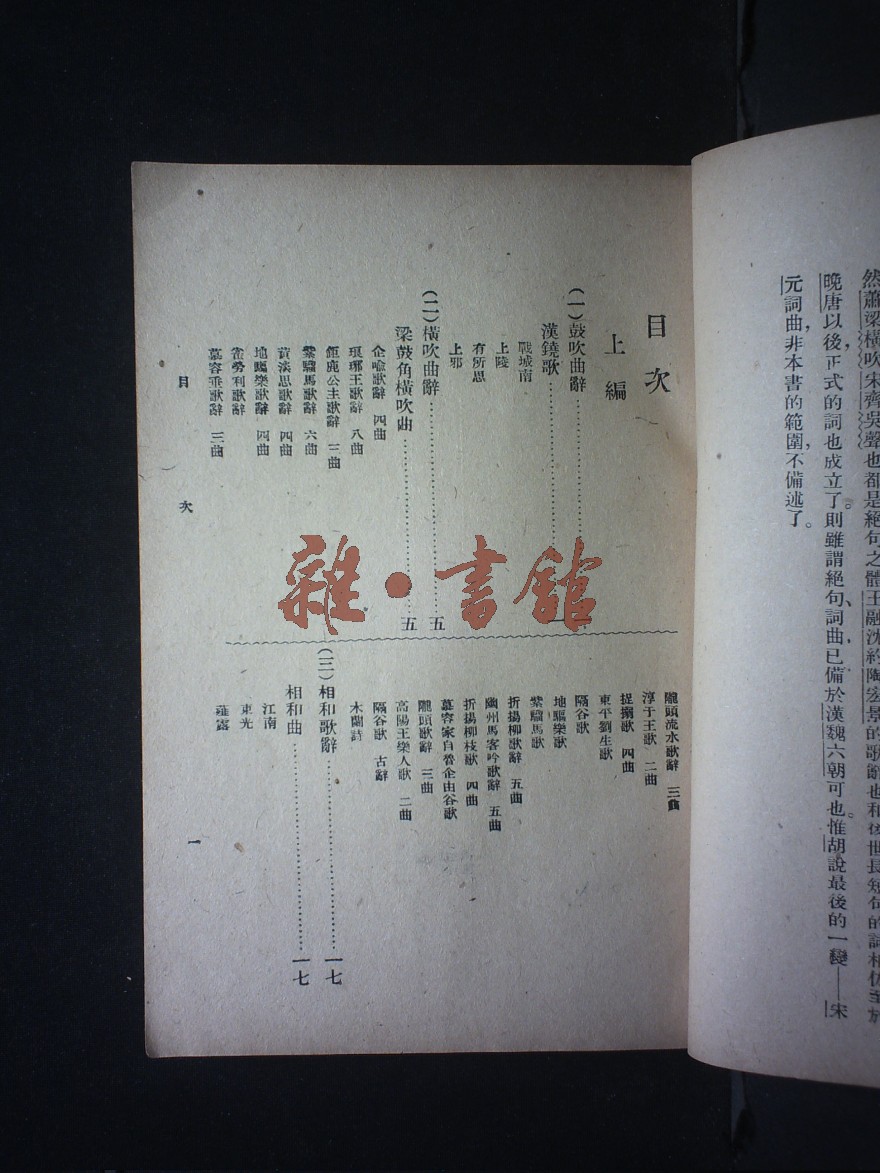 然蕭梁橫吹宋齊吳聲也都是絕句之體王融沈約陶宏景的歌辭也和後世長短句的詞相仿至於
晚唐以後，正式的詞也成立了。則雖謂絕句、詞曲、已備於漢魏六朝可也。惟胡說最後的一變——宋
元詞曲，非本書的範圍，不備述了。
目次
上編
（一）鼓吹曲辭
漢鐃歌
戰城南
上陵
有所思
上邪
（二）橫吹曲辭……五
梁鼓角橫吹曲……五
企喻歌辭 四曲
瑯琊王歌辭 八曲
鉅鹿公主歌辭 三曲
紫騮馬歌辭 六曲
黃淡思歌辭 四曲
地驅樂歌辭 四曲
雀勞利歌辭
慕容垂歌辭 三曲
隴頭流水歌辭 三曲
淳于王歌 二曲
捉搦歌 四曲
東平劉生歌
隔谷歌
地驅樂歌
紫騮馬歌
折揚柳歌辭 五曲
幽州馬客吟歌辭 五曲
折揚柳枝歌 四曲
慕容家自魯企由谷歌
隴頭歌辭 三曲
高陽王樂人歌 二曲
隔谷歌 古辭
木蘭詩
（三）相和歌辭……一七
相和曲……一七
江南
東光
薤露
目次 一
雜·書館